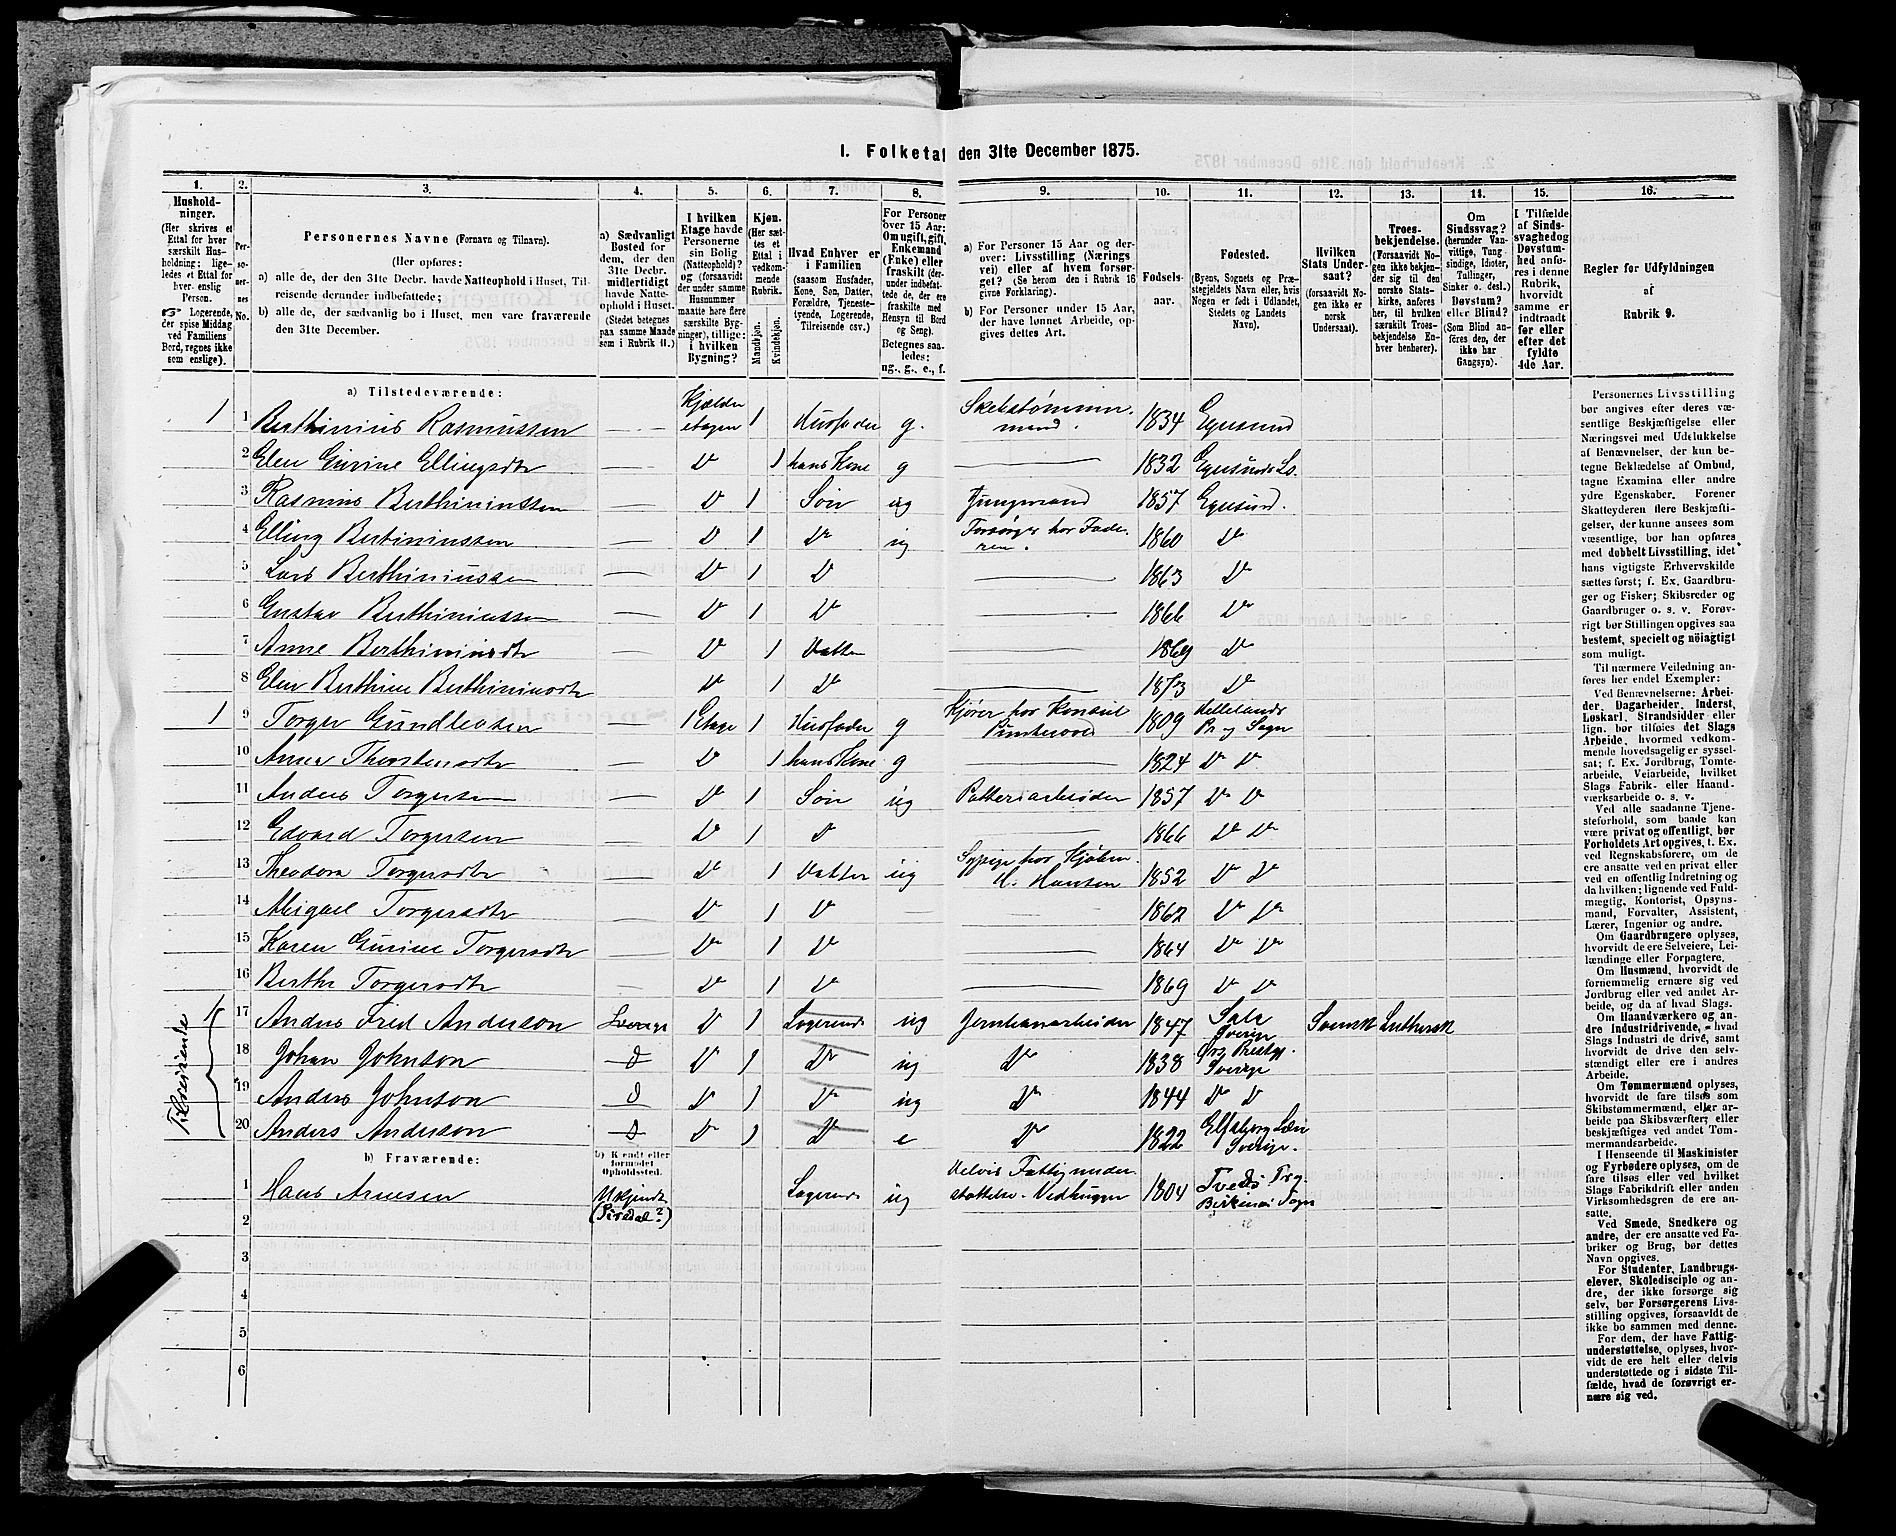 1. Folketal den 31te December 1875.
1. 2. 3. 4. 5. 6. 7. 8. 9. 10. 11. 12. 13. 14. 15. 16.
Hushold-
ninger.
(Her skrives et
Ettal for hver
særskilt Hus-
holdning; lige-
ledes et Ettal for
hver. enslig
Person.
☞ Logerende,
der spise Middag
ved Familiens
Bord, regnes ikke
som enslige).
Per-
so-
ner-
nes
No.
Personernes Navne (Fornavn og Tilnavn).
(Her opføres:
a) alle de, der den 31te Decbr. havde Natteophold i Huset, Til-
reisende derunder indbefattede;
b) alle de, der sædvanlig bo i Huset, men vare fraværende
den 31te December.
a) Sædvanligt
Bosted for
dem, der den
31te Decbr.
midlertidigt
havde Natte-
ophold i Huset
(Stedet betegnes
paa samme Maade
som i Rubrik 11.)
I hvilken
Etage havde
Personerne
sin Bolig
(Natteophold)?
og (forsaavidt
der under samme
Husnummer
maatte høre flere
særskilte Byg-
ninger), tillige:
i hvilken
Bygning?
Kjøn.
(Her sæt-
tes et
Ettal i
vedkom-
mende
Rubrik.
Mandkjøn.
Kvindekjøn.
Hvad Enhver er
i Familien
(saasom Husfader,
Kone, Søn, Datter,
Forældre, Tjeneste-
tyende, Logerende,
Tilreisende csv.)
For Personer
over 15 Aar:
Om ugift, gift,
Enkemand
(Enke) eller
fraskilt (der-
under indbefat-
tede de, der ere
fraskilte med
Hensyn til Bord
og Seng).
Betegnes saa-
ledes:
ug., g., e., f.
a) For Personer 15 Aar og der-
over: Livsstilling (Nærings
vei) eller af hvem forsør-
get? (Se herom den i Rubrik 16
givne Forklaring).
b) For Personer under 15 Aar,
der have lønnet Arbeide, op-
gives dettes Art.
Fødsels-
aar.
Fødested.
(Byens, Sognets og Præ-
stegjeldets Navn eller, hvis
Nogen er født i Udlandet,
Stedets og Landets
Navn).
Hvilken
Stats Under-
saat?
(forsaavidt No-
gen ikke er
norsk
Undersaat).
Troes-
bekjendelse.
(Forsaavidt No-
gen ikke bekjen-
der sig til den
norske Stats-
kirke, anføres
her, til hvilken
særskilt Troes-
bekjendelse En-
hver henhører).
Om
Sindssvag?
(herunder Van-
vittige, Tung-
sindige, Idioter,
Tullinger,
Sinker o. desl.)
Døvstum?
eller Blind?
(Som Blind an-
føres den, der
ikke har
Gangsyn).
I Tilfælde
af Sinds-
svaghed og
Døvstum-
hed anfø-
res i denne
Rubrik,
hvorvidt
samme er
indtraadt
før eller
efter det
fyldte
4de Aar.
Regler for Udfyldningen
af
Rubrik 9.
a) Tilstedeværende:
1 1 Berthinius Rasmussen Kjælder etagen 1 Husfader g. mand. 1834 Egersund
2 Elen Gurine Ellingsdtr — D 1 hans Kone g — 1832 Egersunds Ls.
3 Rasmus Berthiniussen — D 1 Søn ug 1857 Egersund.
4 Elling Bertiniussen — D 1 Do ug Forsørges hos Fade-
ren. 1860 Do
5 Lars Berthiniussen — D 1 D — 1863 D
6 Gustav Berthiniussen — D 1 D — 1866 D
7 Anne Berthiniusdtr — D 1 Datter 1869 D
8 Elen Berthine Berthiniusdtr — D 1 D — 1873 D
1 9 Torger Gundleiksen — 1 Etage 1 Husfader g Kjører hos Konsul 1809 Hellelands
Pr. og Sogn
10 Anna Thorstensdtr — D 1 hans Kone g 1824 D D
11 Anders Torgersen — D 1 Søn ug Potteriarbeider 1857 D D
12 Edvard Torgersen D 1 D — 1866 D D
13 Theodora Torgersdtr — D 1 Datter ug Sypige hos Kjøbm.
H. Hansen 1852 D D
14 Abigael Torgersdtr — D 1 D — 1862 D D
15 Karen Gurine Torgersdtr — D 1 D — 1864 D D
16 Berthe Torgersdtr — D 1 D — 1869 D D
Tilreisende
1 17 Anders Fred Anderson Sverige D 1 Logerende ug Jernbanearbeider 1847 Sala
Sverige Svensk Luthersk
18 Johan Johnson D D 1 D ug D 1838 Sverige
19 Anders Johnson D D 1 D ug D 1844 D D
20 Anders Anderson D D 1 D e D 1822 Elfsborg Læn
Sverige.
b) Fraværende:
b) Kendt eller
formodet
Opholdssted.
1 Hans Arnesen Ukjendt
(Sirdal?) Logerende ug Delvis Fattigunder-
støttelse. Vedhugger 1804 Tveds Prg.
Birkenæs Sogn
2
3
4
5
6
Personernes Livsstilling
bør angives efter deres væ-
sentlige Beskjæftigelse eller
Næringsvei med Udelukkelse
af Benævnelser, der kun be-
tegne Beklædelse af Ombud,
tagne Examina eller andre
ydre Egenskaber. Forener
Skatteyderen flere Beskjæfti-
gelser, der kunne ansees som
væsentlige, bør han opføres
med dobbelt Livsstilling, idet
hans vigtigste Erhvervskilde
sættes først; f. Ex. Gaardbru-
ger og Fisker; Skibsreder og
Gaardbruger o. s. v. Forøv-
rigt bør Stillingen opgives saa
bestemt, specielt og nöiagtigt
som muligt.
Til nærmere Veiledning an-
føres her endel Exempler:
Ved Benævnelserne: Arbei-
der, Dagarbeider, Inderst,
Løskarl, Strandsidder eller
lign. bør tilføies det Slags
Arbeide, hvormed vedkom-
mende hovedsagelig er syssel-
sat; f. Ex. Jordbrug, Tomte-
arbeide, Veiarbeide, hvilket
Slags Fabrik- eller Haand-
værksarbeide o. s. v.
Ved alle saadanne Tjene-
steforhold, som baade kan
være privat og offentligt, bør
Forholdets Art opgives, t. Ex.
ved Regnskabsførere, om de
ere ansatte ved en privat eller
ved en offentlig Indretning og
da hvilken; lignende ved Fuld-
mægtig, Kontorist, Opsyns-
mand, Forvalter, Assistent,
Lærer, Ingeniør og andre.
Om Gaardbrugere oplyses,
hvorvidt de ere Selveiere, Lei-
lændinge eller Forpagtere.
Om Husmænd, hvorvidt de
fornemmelig ernære sig ved
Jordbrug eller ved andet Ar-
beide, og da af hvad Slags.
Om Haandværkere og an-
dre Industridrivende, - hvad
Slags Industri de drive, samt
hvorvidt de drive den selv-
stændigt eller ere i andres
Arbeide.
Om Tømmermænd oplyses,
hvorvidt de fare tilsøs som
Skibstømmermænd, eller ar-
beide paa Skibsværfter, eller
beskjæftiges ved andet Tøm-
mermandsarbeide.
I Henseende til Maskinister
og Fyrbødere oplyses, om de
fare tilsøs eller ved hvilket
Slags Fabrikdrift eller anden
Virksomhedsgren de ere an-
satte.
Ved Smede, Snedkere og
andre, der ere ansatte ved Fa-
briker og Brug, bør dettes
Navn opgives.
For Studenter, Landbrugs-
elever, Skóledisciple og an-
dre, der ikke forsørge sig
selv, bør Forsørgerens Livs-
stilling opgives, forsaavidt de
ikke bo sammen med denne.
For dem, der have Fattig-
understøttelse, oplyses, hvor-
vidt de ere helt eller delvis
understøttede og i sidste Til-
fælde, hvad de forøvrigt er-
nære sig ved.